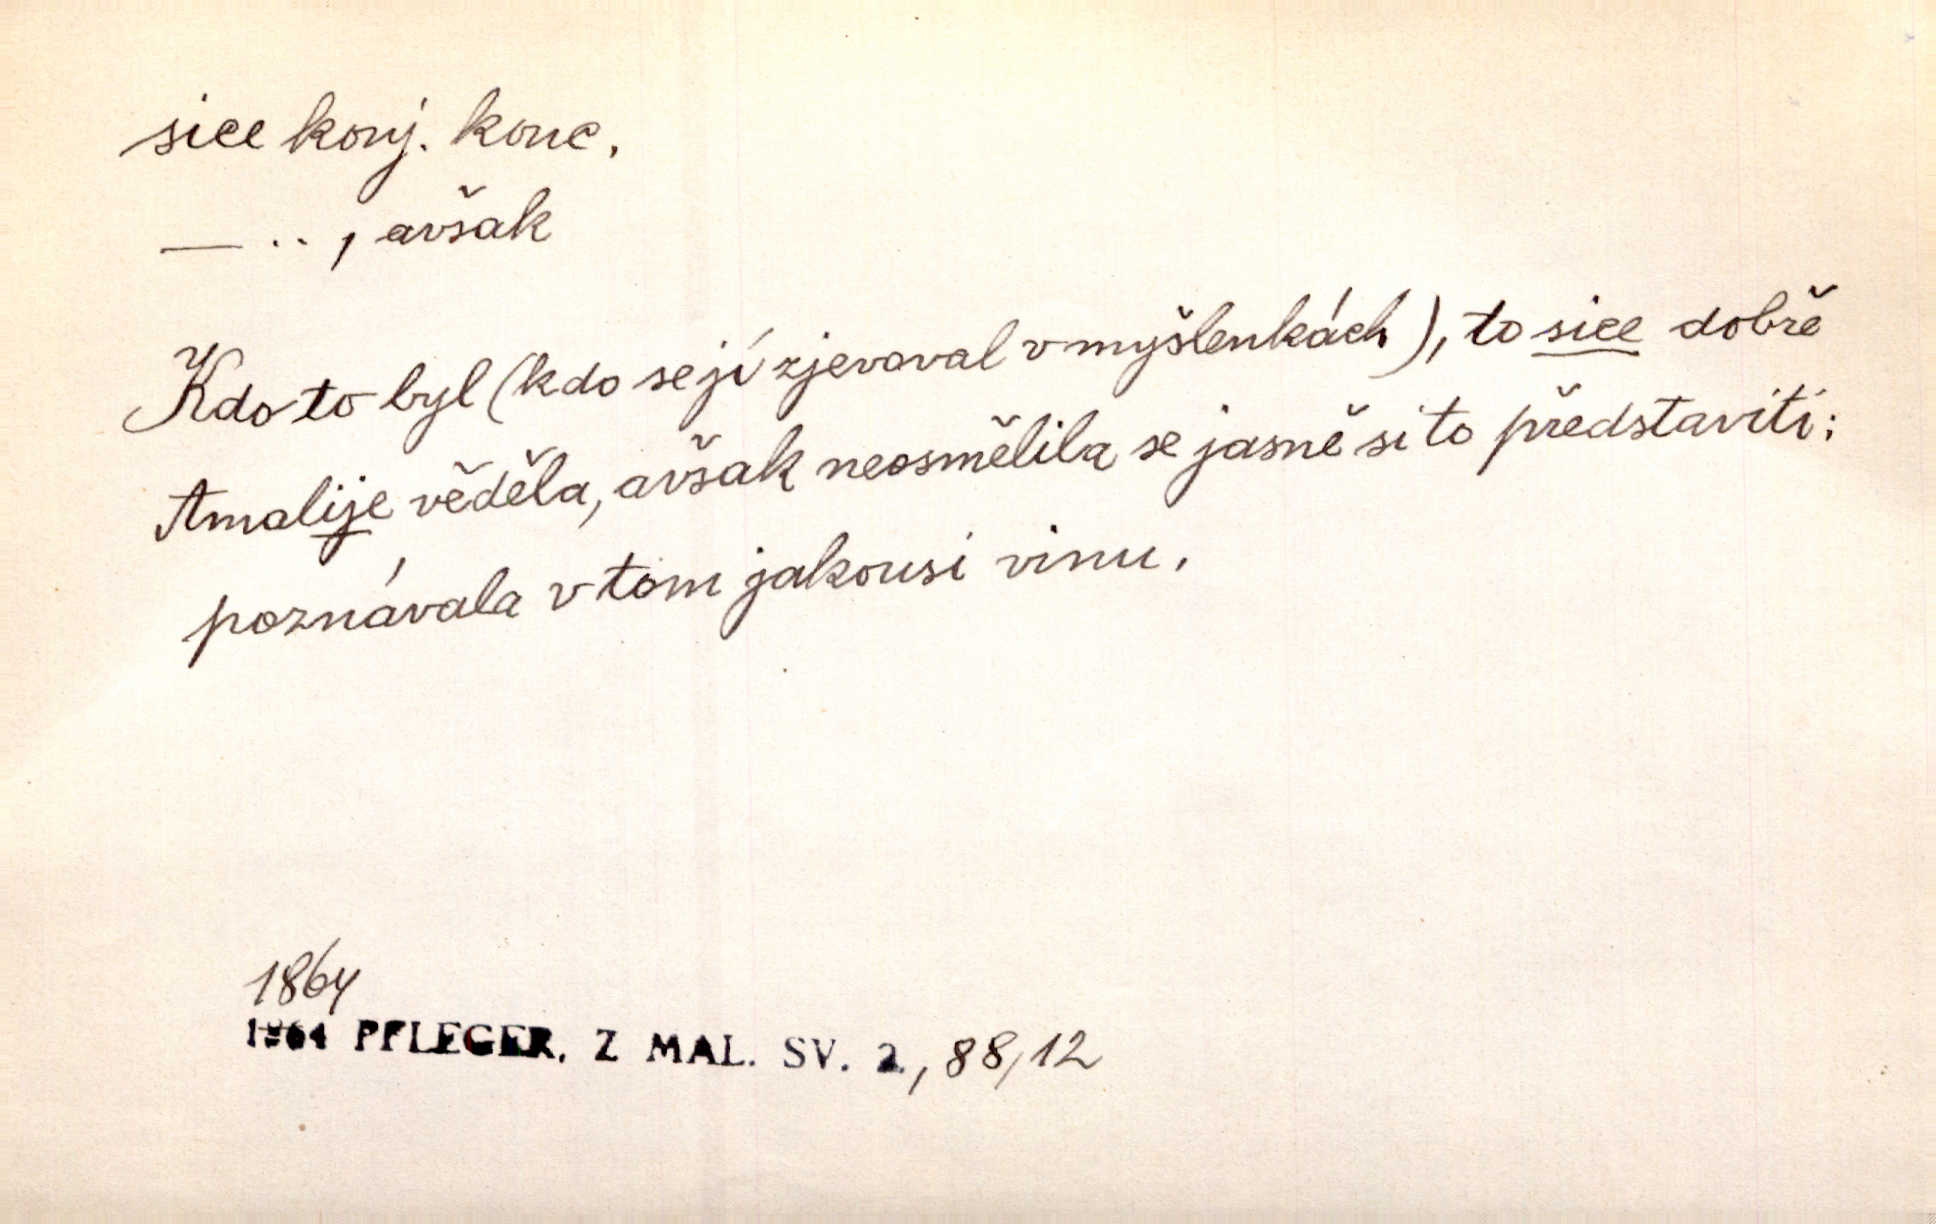 sice konj. konc.
— .., avšak
Kdo to byl (kdo se jí zjevoval v myšlenkách), to sice dobře
Amalije věděla, avšak neosmělila se jasně si to představiti;
poznávala v tom jakousi vinu.
1864
1864 PFLEGER. Z MAL. SV. 2., 88,12